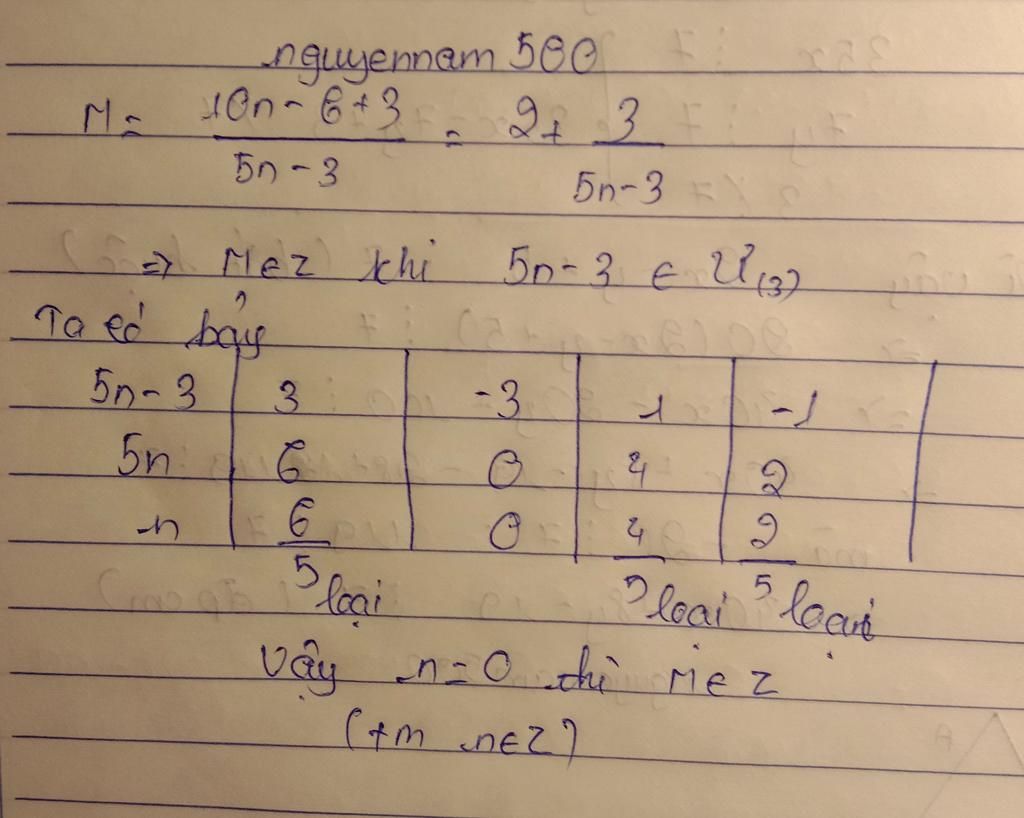 nguyennam 500
M = 10n - 6 + 3 / 5n - 3 = 2 + 3 / 5n - 3
=> M ∈ Z khi 5n - 3 ∈ Ư(3)
Ta có bảy
5n - 3 3 -3 1 -1
5n 6 0 4 2
n 6/5 loại 0 4/5 loại 2/5 loại
Vậy n = 0 thì M ∈ Z
(tm n ∈ Z)